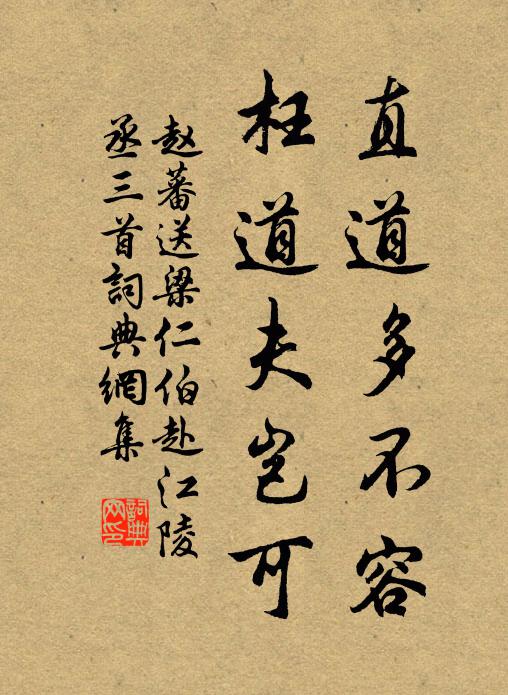 直道多不容
枉道夫岂可
赵蕃送梁仁伯赴江陵
丞三首詞典網集
詞典
网印